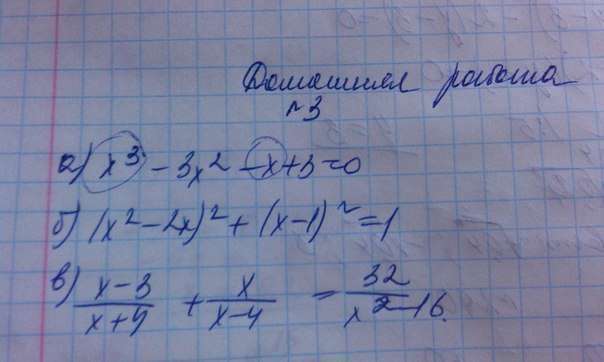 Домашняя работа
№3
а) x³ - 3x² - x + 3 = 0
б) (x² - 2x)² + (x - 1)² = 1
в) (x - 3)/(x + 4) + x/(x - 4) = 32/(x² - 16)